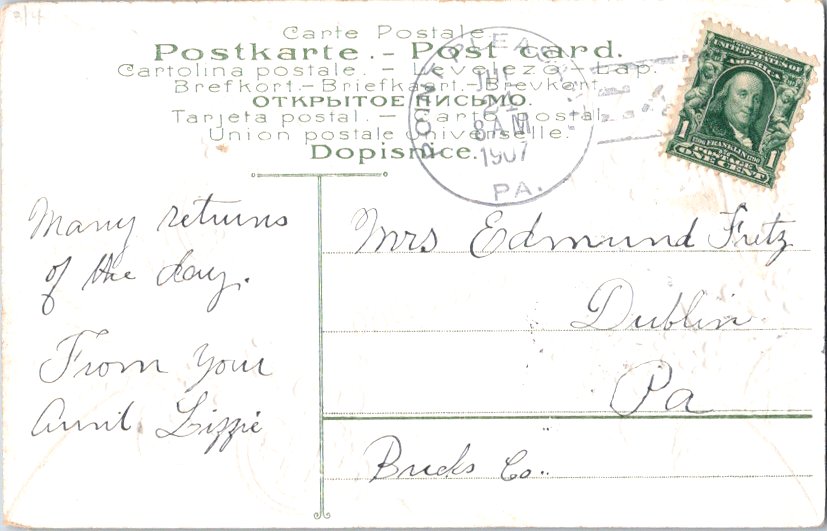 3/4
Carte Postale.
Postkarte. – Post card.
Cartolina postale. – Levelező-Lap.
Brefkort. – Briefkaart. – Brevkort.
ОТКРЫТОЕ ПИСЬМО.
Tarjeta postal. – Carte postal.
Union postale universelle.
Dopisnice.
POINT PLEASANT
8 AM
1907
PA.
UNITED STATES OF
AMERICA
1 FRANKLIN 1
POSTAGE
ONE CENT
Many returns
of the day.
From your
Aunt Lizzie
Mrs Edmund Fretz
Dublin
Pa
Bucks Co..